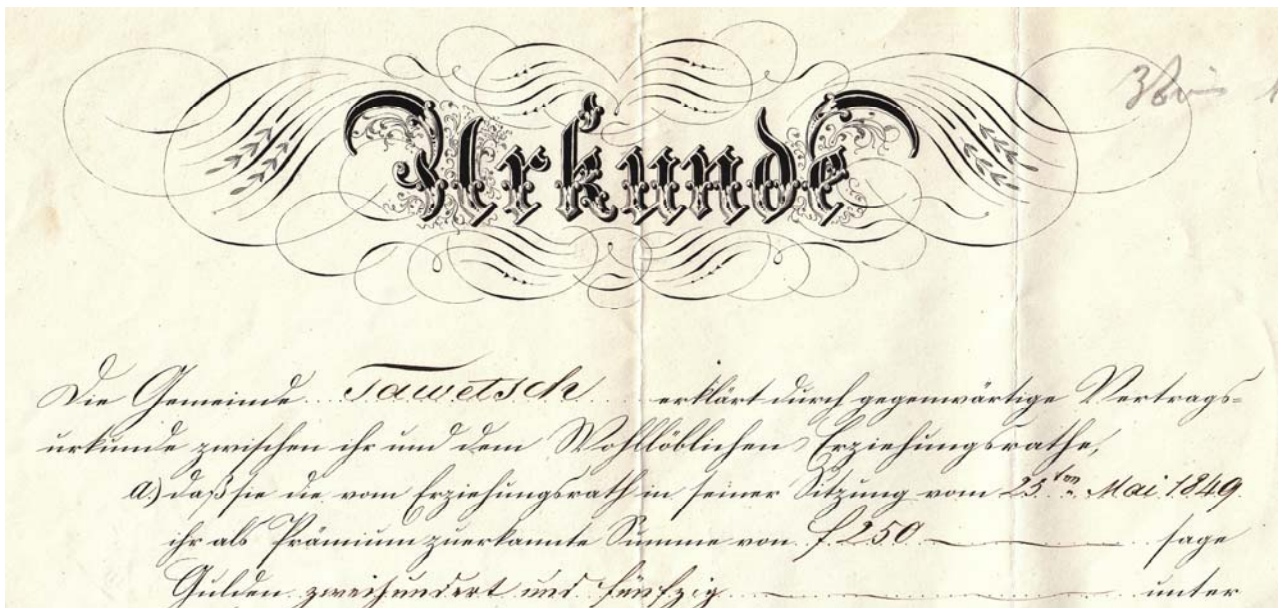 Urkunde
Die Gemeinde Tawetsch erklärt durch gegenwärtige Vertrags=
urkunde zwischen ihr und dem Wohllöblichen Erziehungsrathe,
a.) daß sie die vom Erziehungsrath in seiner Sitzung vom 25.ten Mai 1849.
ihr als Prämium zuerkannte Summe von f. 250 sage
Gulden zweihundert und fünfzig unter